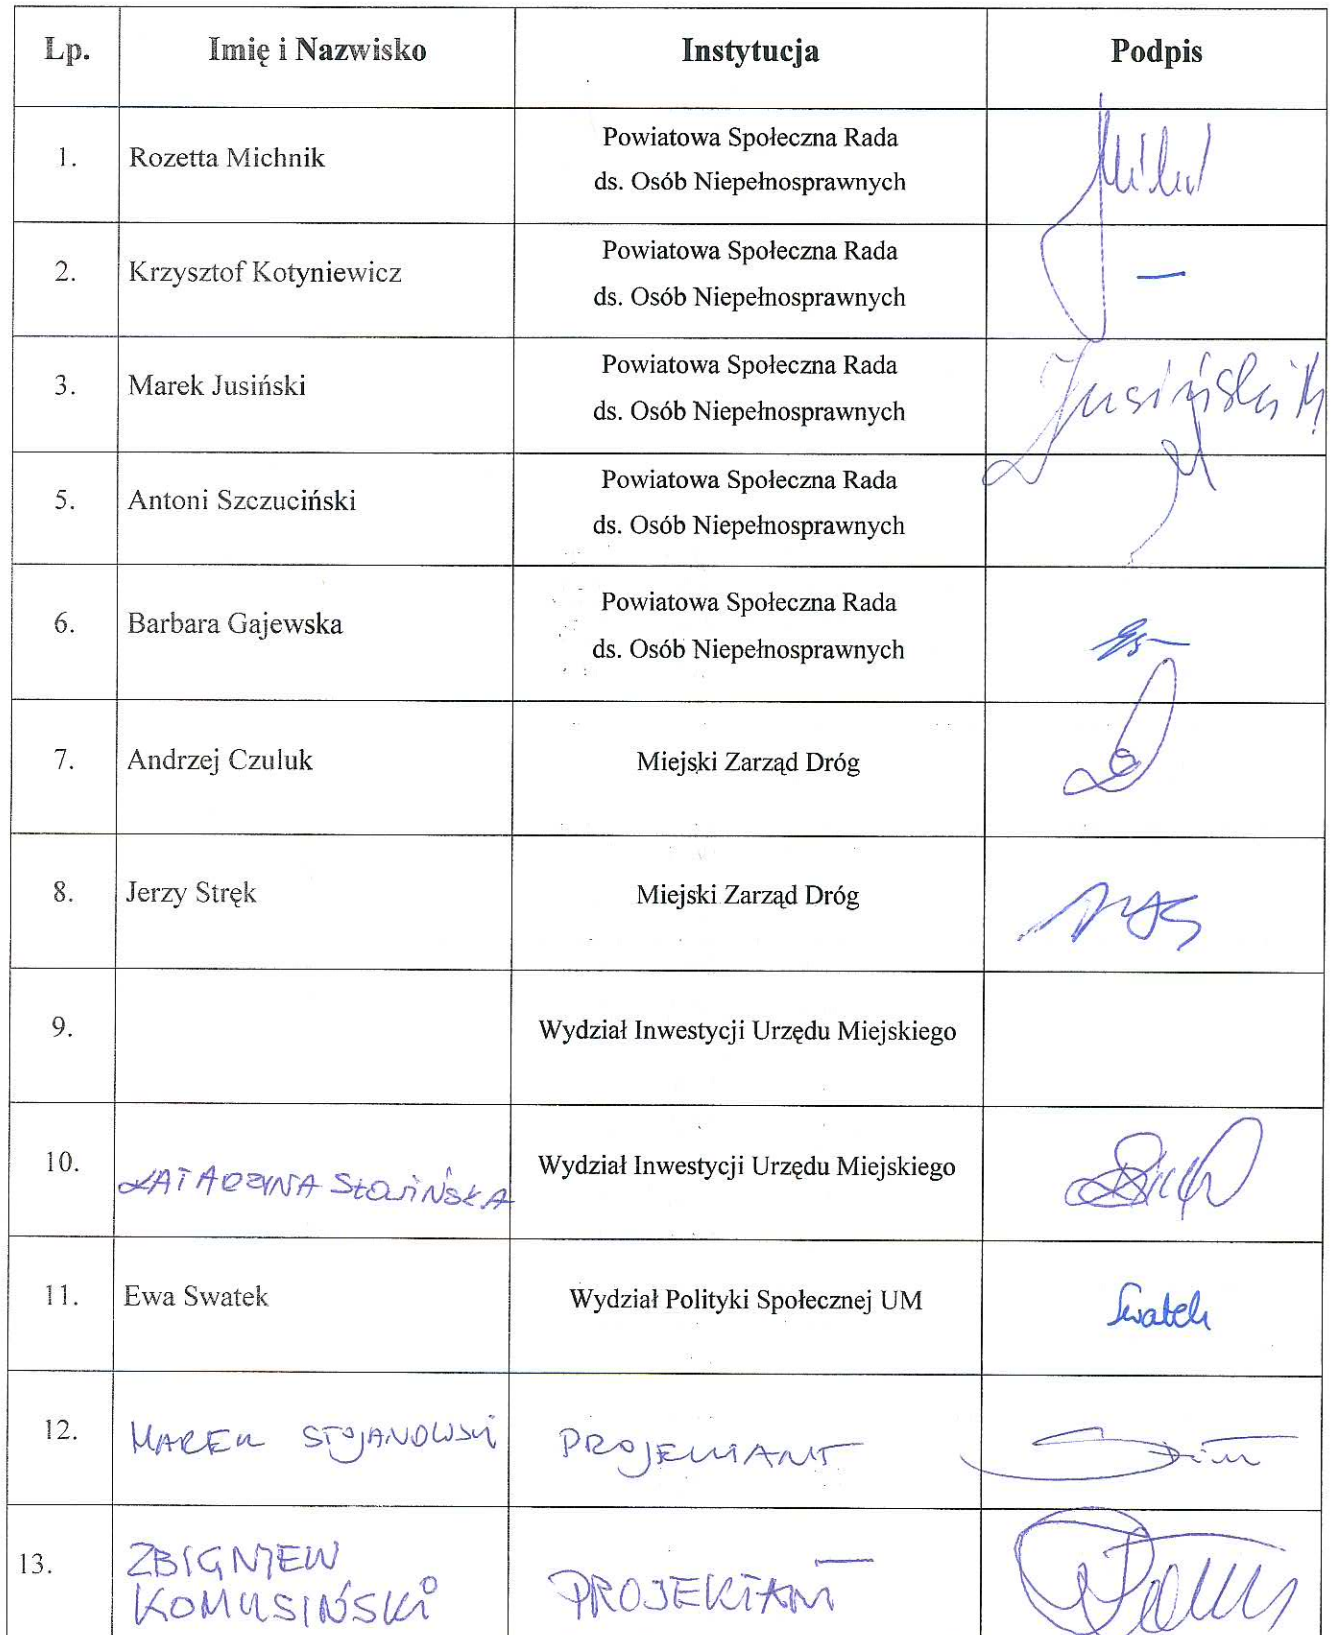 Lp. Imię i Nazwisko Instytucja Podpis
1. Rozetta Michnik Powiatowa Społeczna Rada
ds. Osób Niepełnosprawnych
2. Krzysztof Kotyniewicz Powiatowa Społeczna Rada
ds. Osób Niepełnosprawnych —
3. Marek Jusiński Powiatowa Społeczna Rada
ds. Osób Niepełnosprawnych Jusiński M
5. Antoni Szczuciński Powiatowa Społeczna Rada
ds. Osób Niepełnosprawnych
6. Barbara Gajewska Powiatowa Społeczna Rada
ds. Osób Niepełnosprawnych
7. Andrzej Czuluk Miejski Zarząd Dróg
8. Jerzy Stręk Miejski Zarząd Dróg
9. Wydział Inwestycji Urzędu Miejskiego
10. KATARZYNA Wydział Inwestycji Urzędu Miejskiego
11. Ewa Swatek Wydział Polityki Społecznej UM Swatek
12. MAREK STOJANOWSKI PROJEKTANT
13. ZBIGNIEW
KOMUSIŃSKI PROJEKTANT